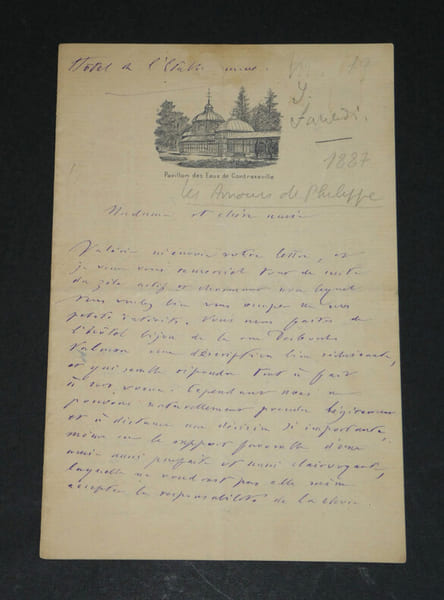 Hôtel de l'Etablissement.
Samedi.
1887
Pavillon des Eaux de Contrexeville
Les Amours de Philippe
Madame et chère amie
Valérie m'envoie votre lettre, et
je veux vous remercier tout de suite
du zèle actif et charmant avec lequel
vous voulez bien vous occuper de nos
petits intérêts. Vous nous faites de
l'hôtel bijou de la rue Desbordes
Valmore une description bien séduisante,
et qui semble répondre tout à fait
à nos vœux. Cependant nous ne
pouvons naturellement prendre légèrement
et à distance une décision si importante,
même sur le rapport favorable d'une
amie aussi parfaite et aussi clairvoyante,
laquelle ne voudrait pas elle même
accepter la responsabilité de la chose.